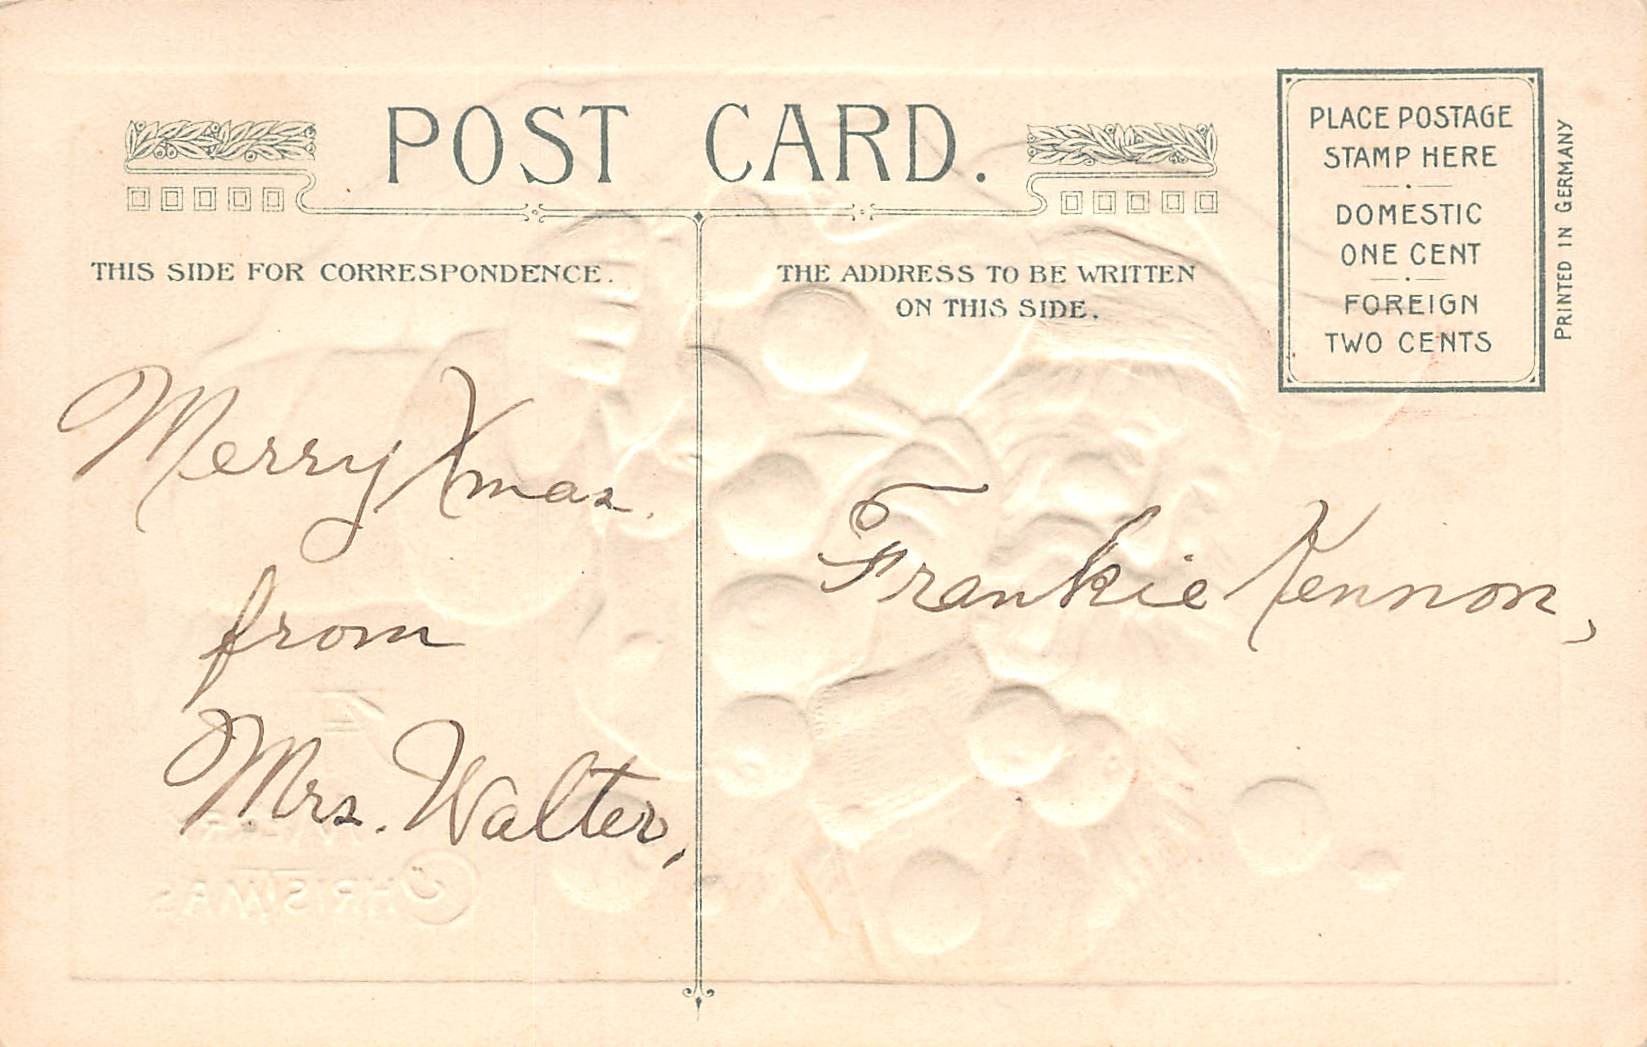 POST CARD.
THIS SIDE FOR CORRESPONDENCE.
Merry Xmas.
from
Mrs. Walter,
THE ADDRESS TO BE WRITTEN
ON THIS SIDE.
Frankie Kennon,
PLACE POSTAGE
STAMP HERE
DOMESTIC
ONE CENT
FOREIGN
TWO CENTS
PRINTED IN GERMANY
CHRISTMAS